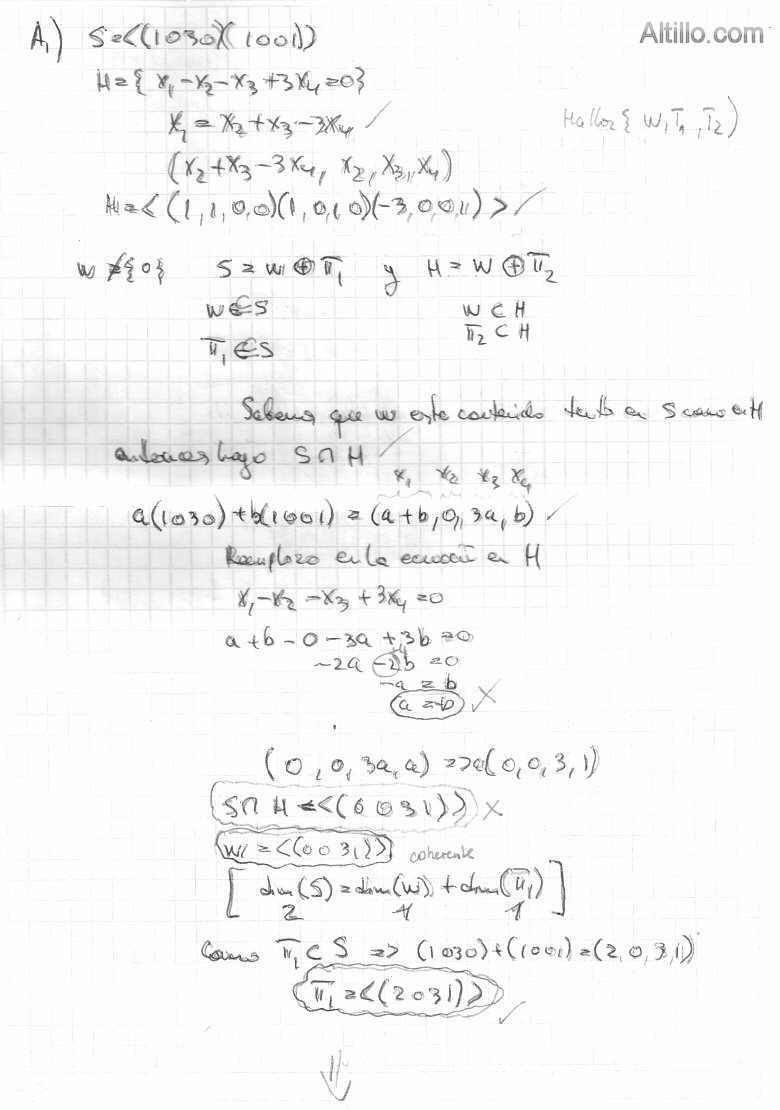 A1) S=<(1030)(1001)> Altillo.com
H={ x1-x2-x3+3x4=0}
x1 = x2+x3-3x4 ✓ Hallar { W, T1, T2 }
(x2+x3-3x4, x2, x3, x4)
H=<(1,1,0,0)(1,0,1,0)(-3,0,0,1)> ✓
W≠{0} S = W ⊕ T1 y H = W ⊕ T2
W⊂S W⊂H
T1⊂S T2⊂H
Sabemos que W este contenido tanto en S como en H
entonces hago S∩H ✓
x1 x2 x3 x4
a(1030)+b(1001) = (a+b, 0, 3a, b) ✓
Reemplazo en la ecuación en H
x1-x2-x3+3x4=0
a+b-0-3a+3b=0
-2a-2b=0
-a=b
a=-b X
(0,0,3a,a) => a(0,0,3,1)
S∩H=<(0031)> X
W=<(0031)> coherente
[ dim(S)=dim(W)+dim(T1) ]
2 1 1
Como T1⊂S => (1030)+(1001)=(2,0,3,1)
T1=<(2031)> ✓
⇓